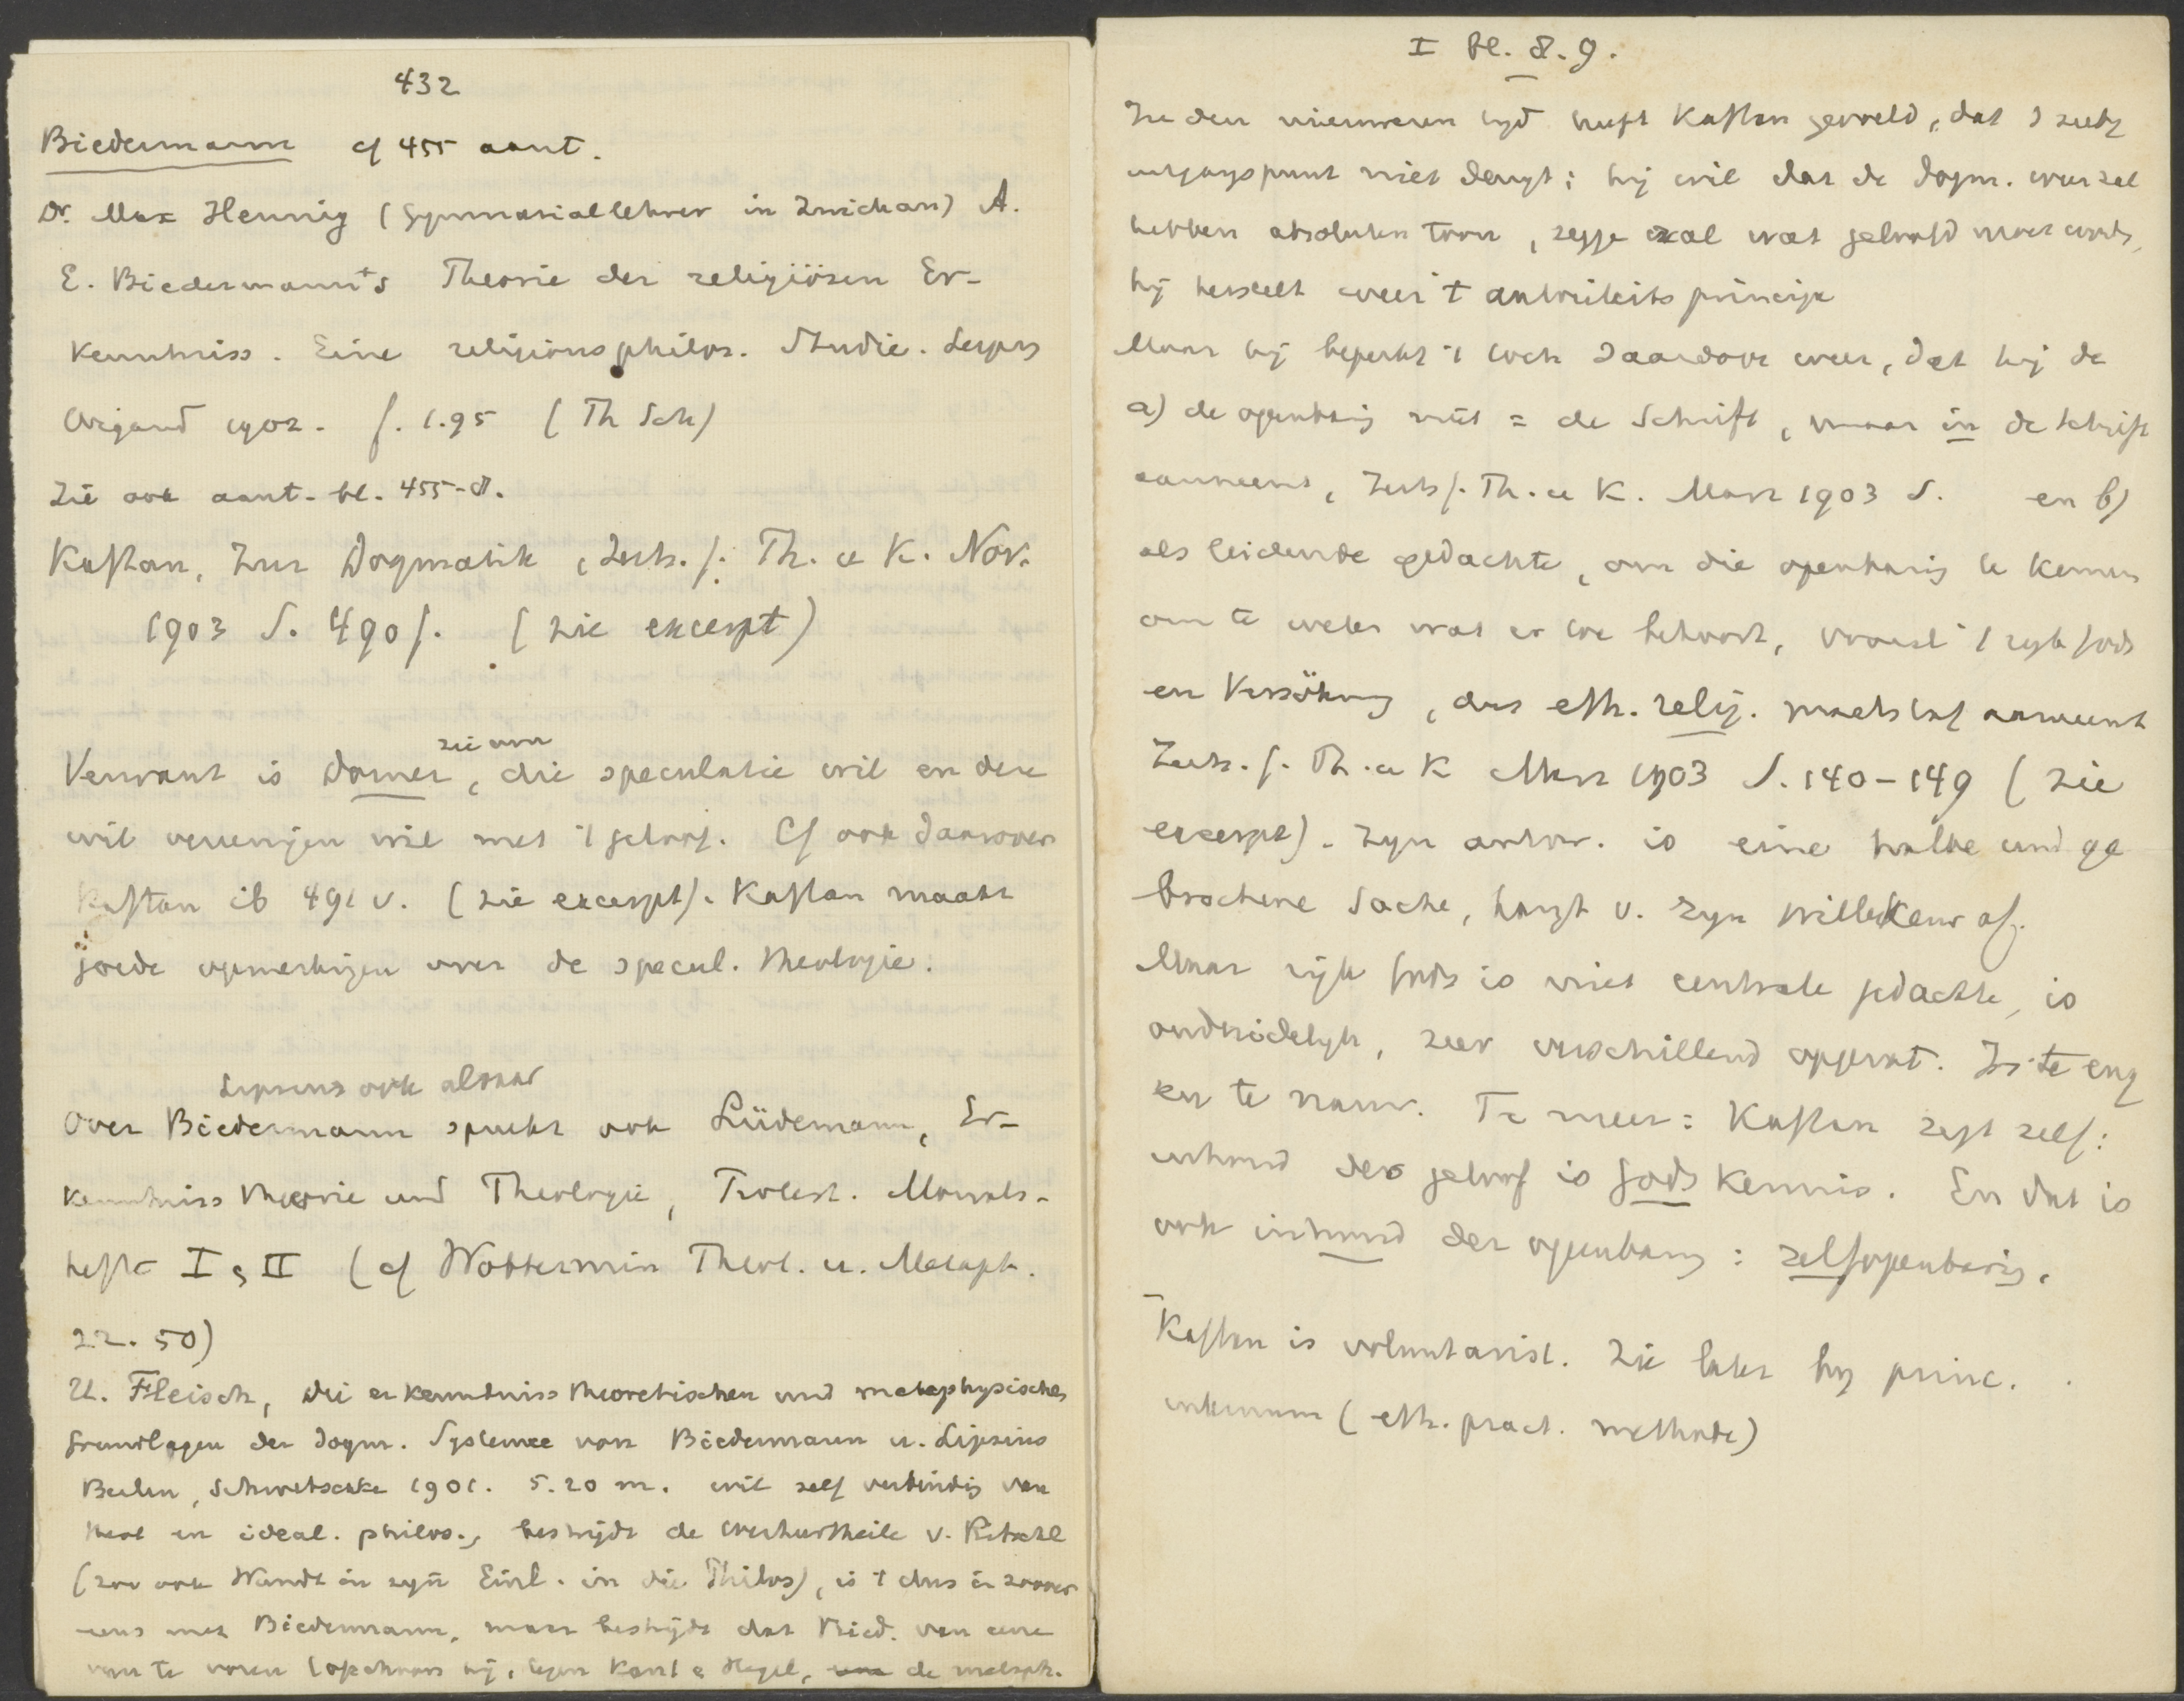 432
Biedermann cf 455 aant.
Dr. Max Hennig (Gymnasiallehrer in Zwickau) A.
E. Biedermann's Theorie der religiösen Er-
kenntniss. Eine religionsphilos. Studie. Leipz
Wigand 1902. f. 1.95 (Th Sch)
Zie ook aant. bl. 455-8.
Kaftan, Zur Dogmatik, Zeits. f. Th. u K. Nov.
1903 S. 490 f. (zie excerpt)
zie om
Verwant is Dorner, die speculatie wil en deze
wil vereenigen wil met 't geloof. Cf ook daarover
Kaftan ib 491 v. (zie excerpt). Kaftan maakt
goede opmerkingen over de specul. theologie.
Lipsius ook alsook
Over Biedermann spreekt ook Lüdemann, Er-
kenntniss theorie und Theologie, Protest. Monats-
hefte I & II (cf Wobbermin Theol. u. Metaph.
22. 50)
U. Fleisch, die erkenntnisstheoretischen und metaphysischen
Grundlagen der dogm. Systeme von Biedermann u. Lipsius
Berlin, Schwetschke 1901. 5.20 m. wil zelf verbindig van
theol en ideal. philos., bestrijdt de Werthurtheile v. Ritschl
(zoo ook Wundt in zijn Einl. in die Philos), is 't dus in zoover
eens met Biedermann, maar bestrijdt dat Bied. van eene
om te voren hij, tegen Kant & Hegel, de metaph.
I bl. 8. 9.
In den nieuweren tijd heeft Kaftan gevoeld, dat
uitgangspunt niet deugt; hij wil dat de dogm. weer zal
hebben absoluten toon, zegge zal wat geloofd moet worden,
hij herstelt weer 't autoriteits principe
Maar hij beperkt 't toch daardoor weer, dat hij de
a) de openbaring niet = de Schrift, maar in de schrift
aanneemt, Zeits f. Th. u K. Marz 1903 S. en b)
als leidende gedachte, om die openbaring te kennen
om te weten wat er toe behoort, vooral 't rijk Gods
en Versöhnung, dus eth. relig. maatstaf aanneemt
Zeits. f. Th. u K Marz 1903 S. 140-149 (zie
excerpt). Zijn antw. is eine halbe und ge
brochene Sache, hangt v. zijn willekeur af.
Maar rijk Gods is niet centrale gedachte, is
onduidelijk, zeer verschillend opgevat. Is te eng
en te nauw. Te meer: Kaftan zegt zelf:
inhoud des geloof is Gods kennis. En dat is
ook inhoud der openbaring: zelfopenbaring.
Kaftan is voluntarist. Zie later bij princ.
internum (eth. pract. methode)